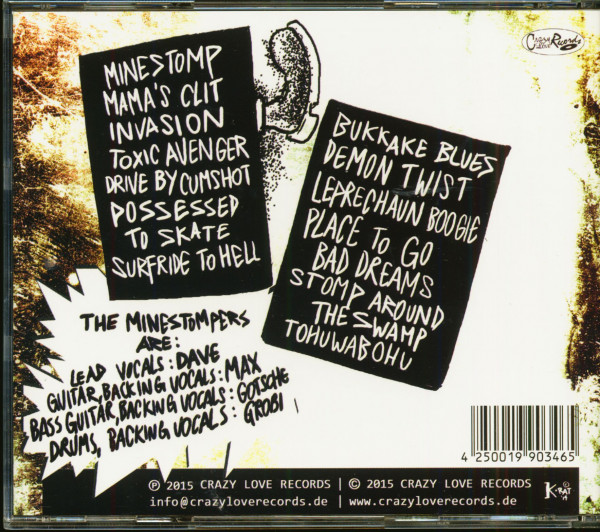 Crazy Love Records
MINESTOMP
MAMA'S CLIT
INVASION
TOXIC AVENGER
DRIVE BY CUMSHOT
POSSESSED
TO SKATE
SURFRIDE TO HELL
BUKKAKE BLUES
DEMON TWIST
LEPRECHAUN BOOGIE
PLACE TO GO
BAD DREAMS
STOMP AROUND
THE SWAMP
TOHUWABOHU
THE MINESTOMPERS
ARE:
LEAD VOCALS: DAVE
GUITAR, BACKING VOCALS: MAX
BASS GUITAR, BACKING VOCALS: GOTSCHE
DRUMS, BACKING VOCALS: GROBI
4 250019 903465
℗ 2015 CRAZY LOVE RECORDS | © 2015 CRAZY LOVE RECORDS
info@crazyloverecords.de | www.crazyloverecords.de
K-RAT